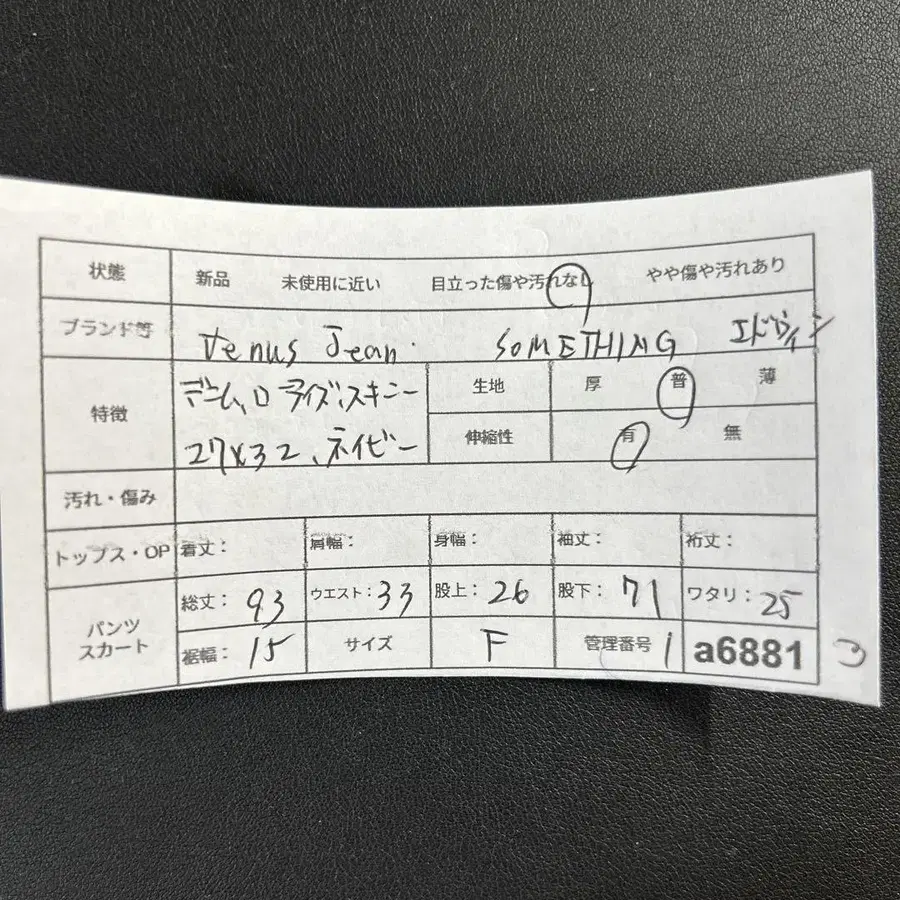 状態 新品 未使用に近い 目立った傷や汚れなし やや傷や汚れあり
ブランド等 Venus Jean. SOMETHING エドウィン
特徴 デニム、ローライズ、スキニー 生地 厚 普 薄
27×32、ネイビー 伸縮性 有 無
汚れ・傷み
トップス・OP 着丈: 肩幅: 身幅: 袖丈: 裄丈:
パンツ スカート 総丈: 93 ウエスト: 33 股上: 26 股下: 71 ワタリ: 25
裾幅: 15 サイズ F 管理番号 1 a6881